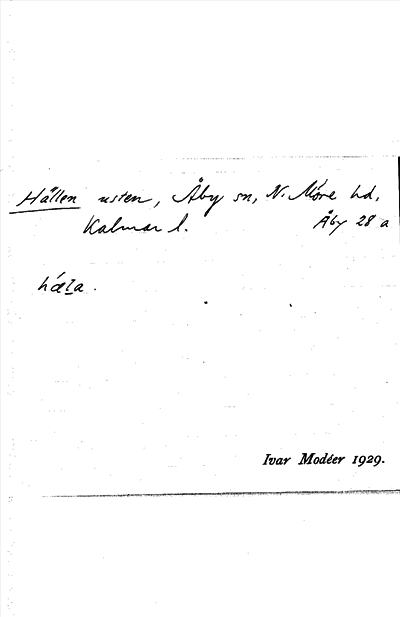 Hällen usten, Åby sn, N. Möre hd,
Kalmar l. Åby 28 a
Ivar Modéer 1929.